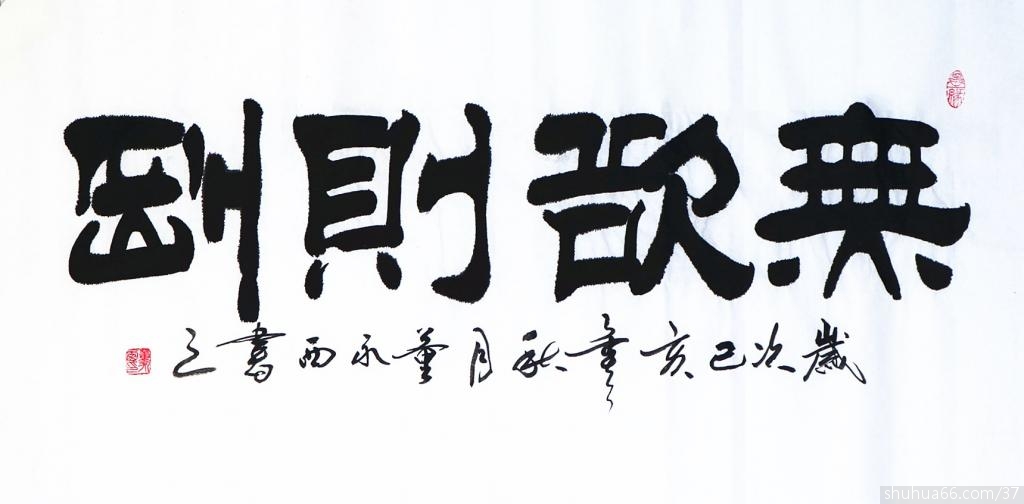 無欲則剛
歲次己亥年秋月董永西書之
shuhua66.com/37